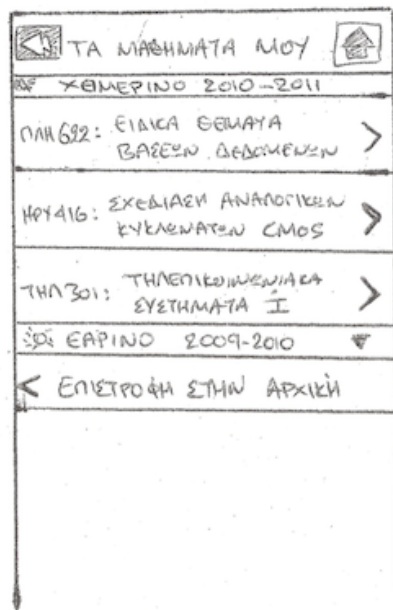 ΤΑ ΜΑΘΗΜΑΤΑ ΜΟΥ
ΧΕΙΜΕΡΙΝΟ 2010-2011
ΠΛΗ 692: ΕΙΔΙΚΑ ΘΕΜΑΤΑ
ΒΑΣΕΩΝ ΔΕΔΟΜΕΝΩΝ
ΗΡΥ 416: ΣΧΕΔΙΑΣΗ ΑΝΑΛΟΓΙΚΩΝ
ΚΥΚΛΩΜΑΤΩΝ CMOS
ΤΗΛ 301: ΤΗΛΕΠΙΚΟΙΝΩΝΙΑΚΑ
ΣΥΣΤΗΜΑΤΑ I
ΕΑΡΙΝΟ 2009-2010
< ΕΠΙΣΤΡΟΦΗ ΣΤΗΝ ΑΡΧΙΚΗ